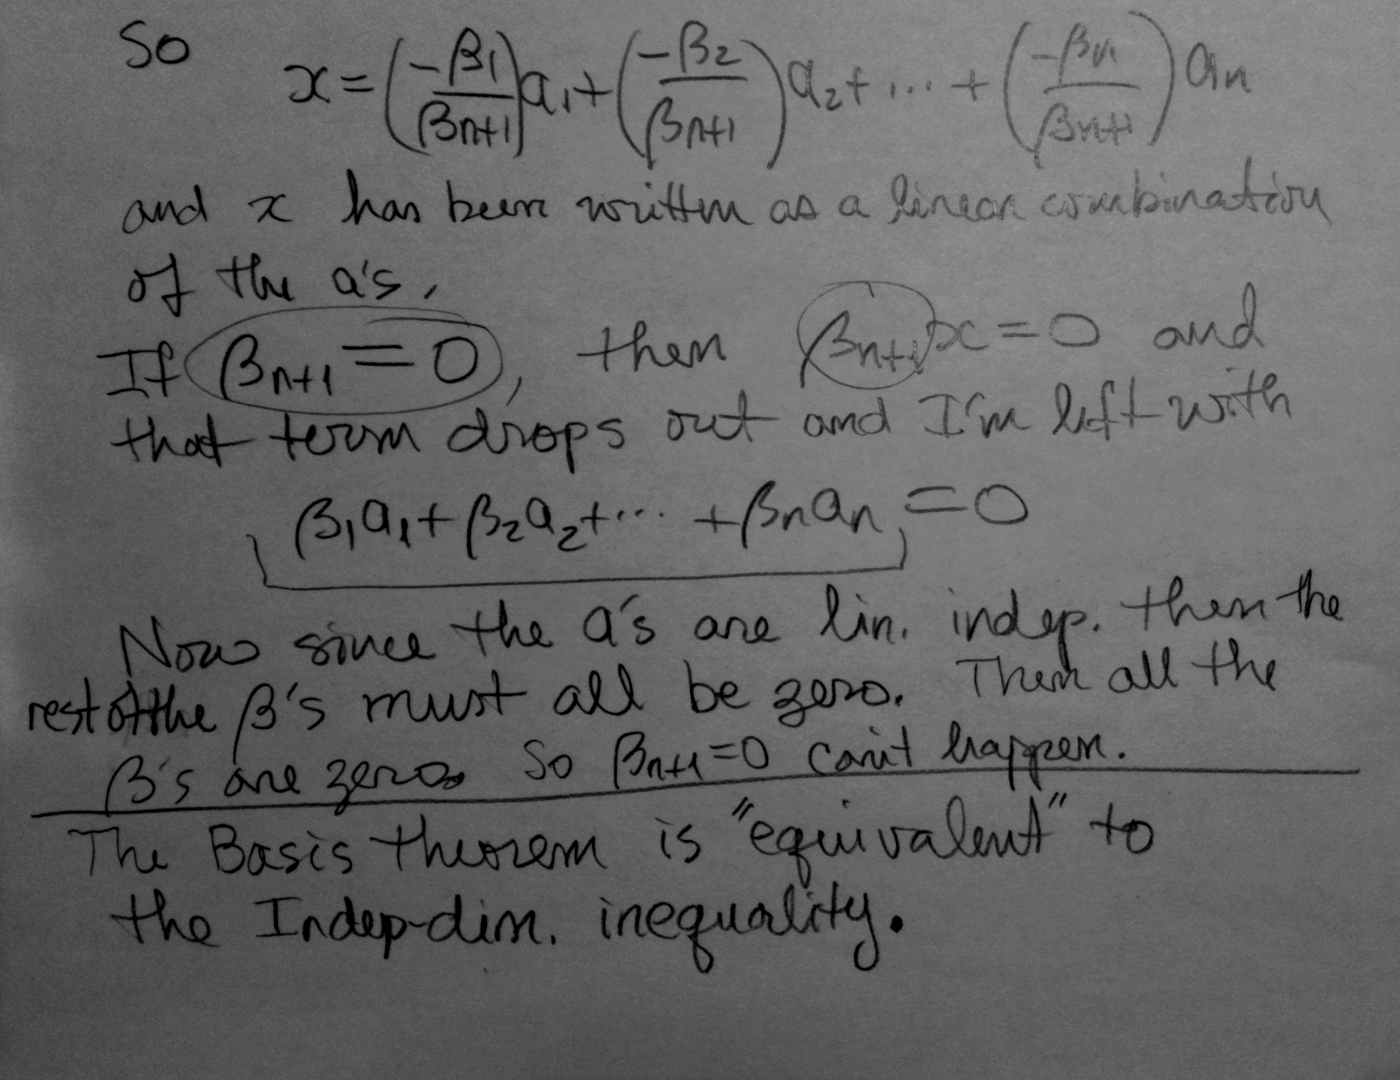 So
x = (-β₁/βₙ₊₁)a₁ + (-β₂/βₙ₊₁)a₂ + ... + (-βₙ/βₙ₊₁)aₙ
and x has been written as a linear combination
of the a's,
If βₙ₊₁ = 0, then βₙ₊₁x = 0 and
that term drops out and I'm left with
β₁a₁ + β₂a₂ + ... + βₙaₙ = 0
Now since the a's are lin. indep. then the
rest of the β's must all be zero. Then all the
β's are zero. So βₙ₊₁ = 0 can't happen.
The Basis theorem is "equivalent" to
the Indep-dim. inequality.